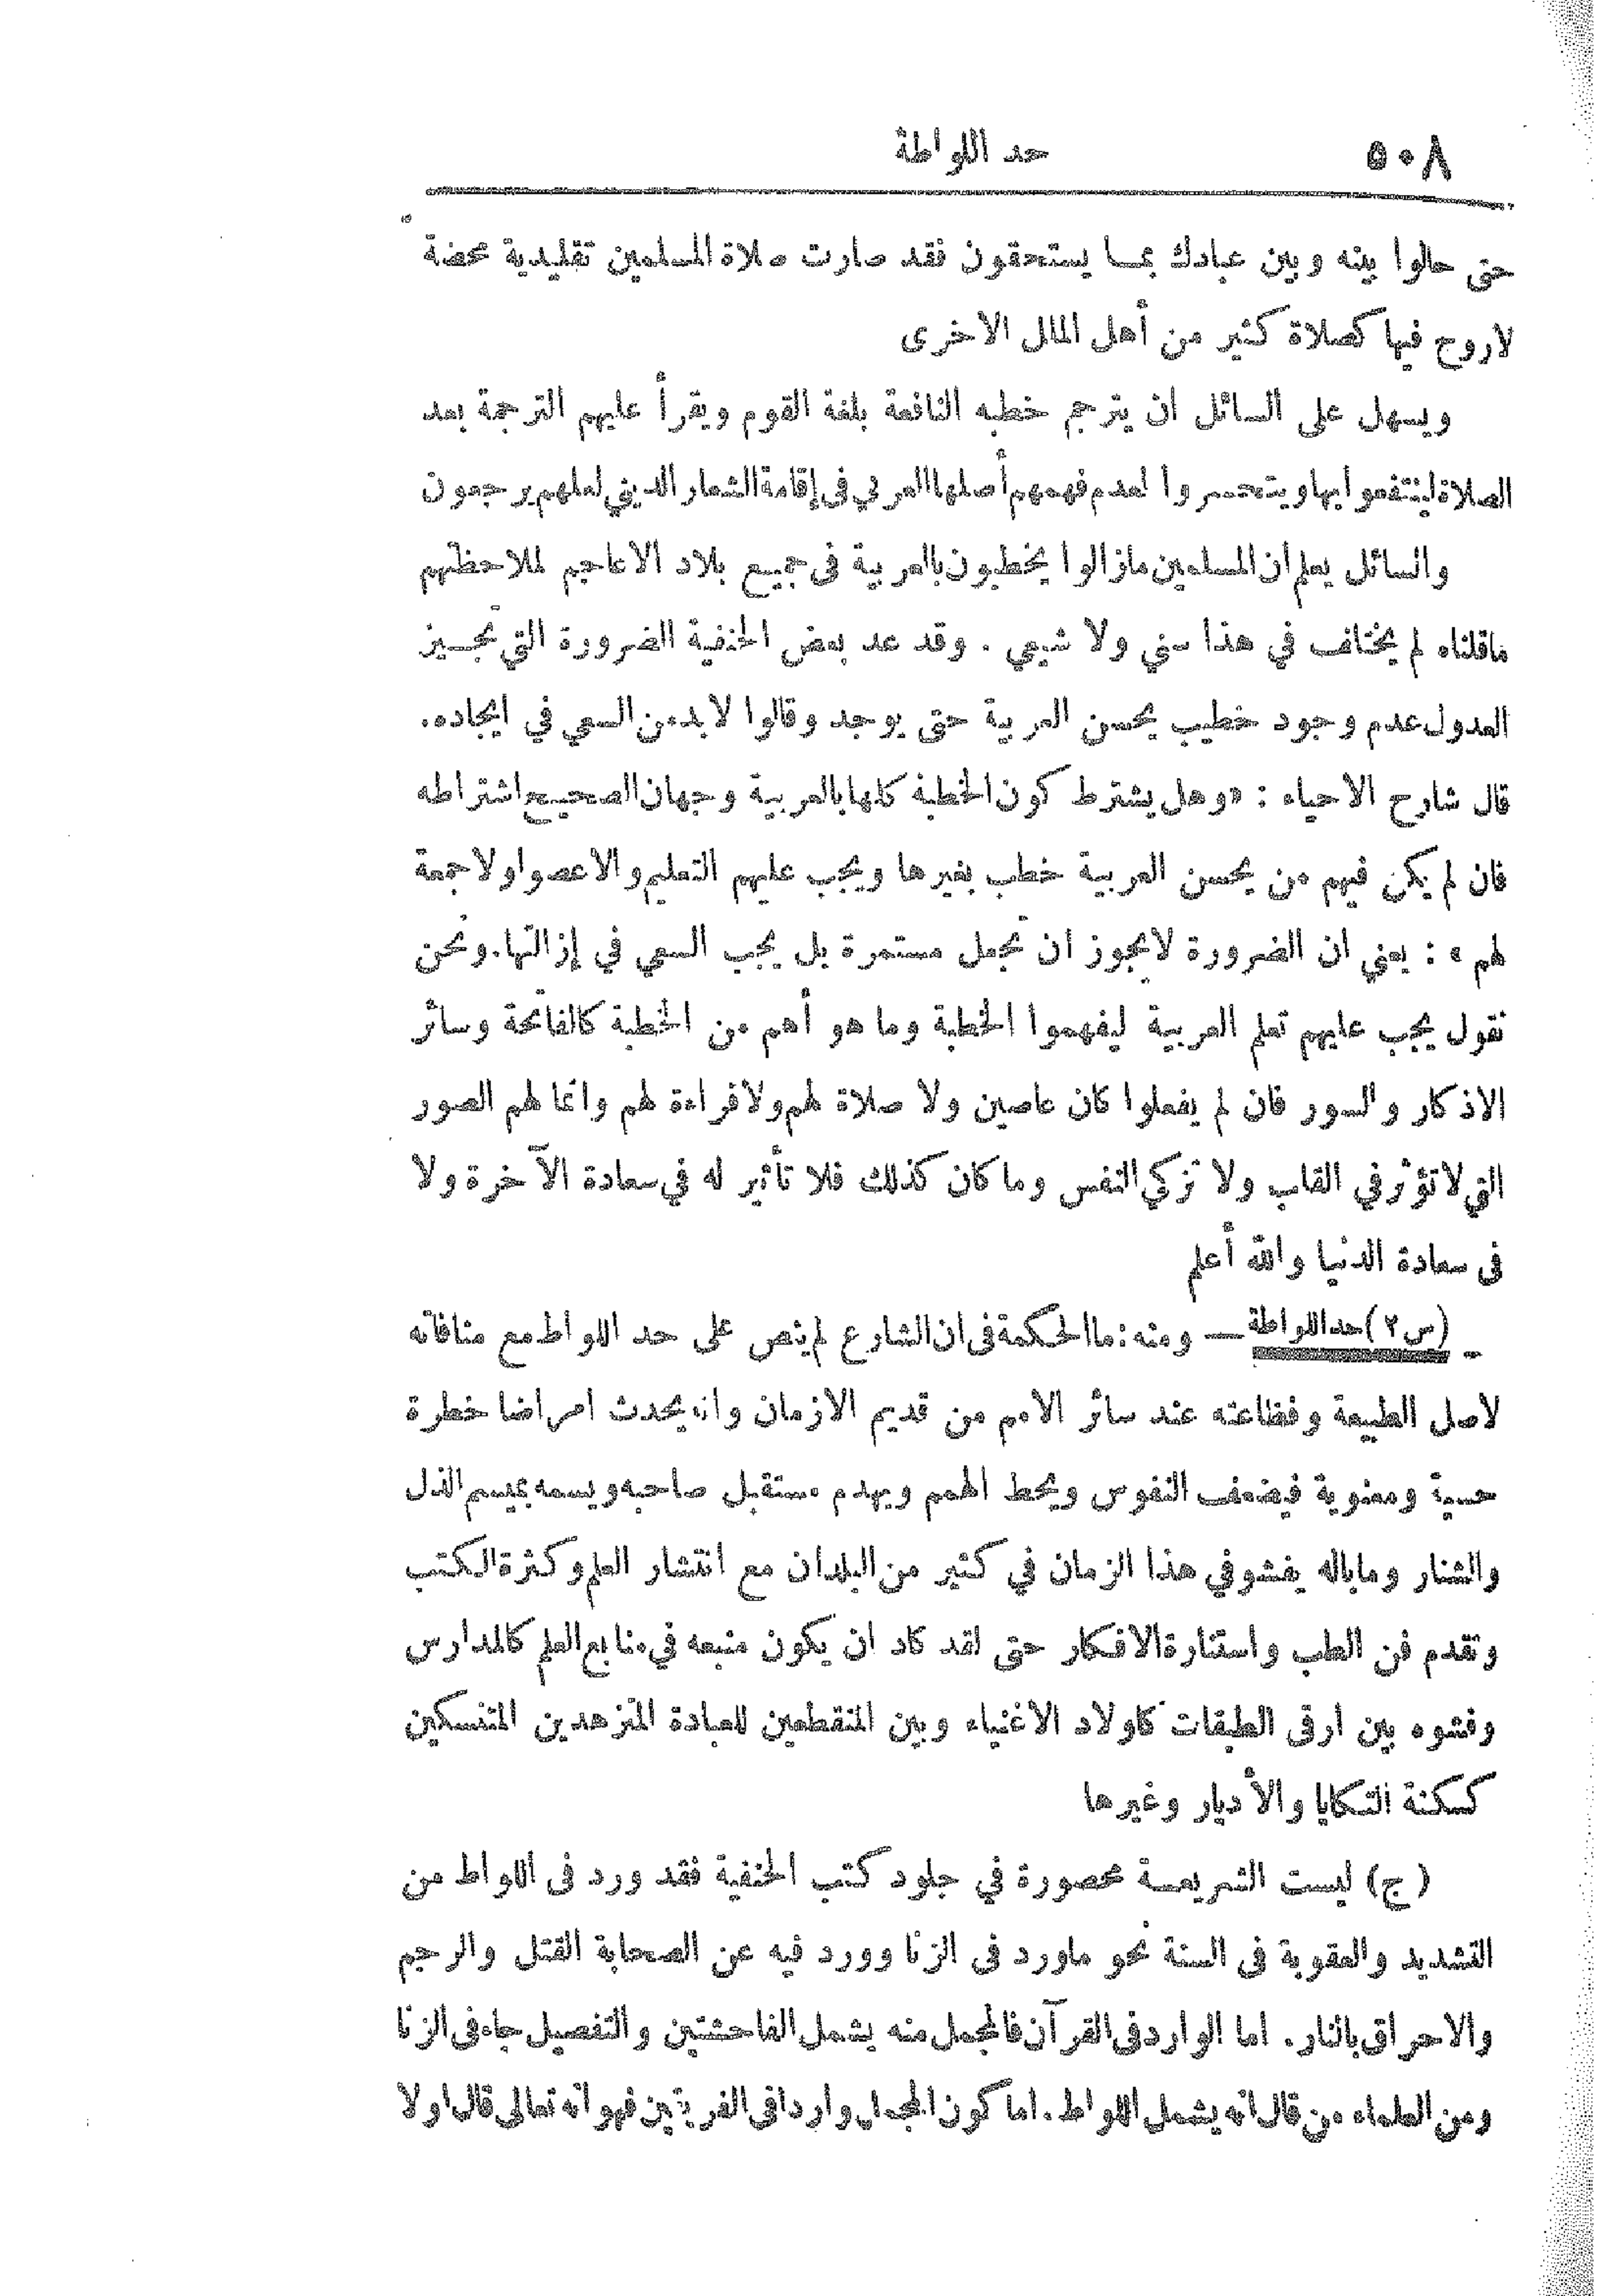 ٥٠٨ حد اللواطة
حتى حالوا بينه وبين عبادك بمـا يستحقون فقد صارت صلاة المسلمين تقليدية محضة
لاروح فيها كصلاة كثير من أهل الملل الاخرى
ويسهل على السائل ان يترجم خطبه النافعة بلغة القوم ويقرأ عليهم الترجمة بعد
الصلاة لينتفعوا بها ويتحسروا لعدم فهمهم أصلها العربي فى إقامة الشعار الديني لعلهم يرجعون
والسائل يعلم ان المسلمين مازالوا يخطبون بالعربية فى جميع بلاد الاعاجم لملاحظتهم
ماقلناه لم يختلف في هذا سني ولا شيعي . وقد عد بعض الحنفية الضرورة التي تجـيز
العدول عدم وجود خطيب يحسن العربية حتى يوجد وقالوا لابد من السعي في ايجاده .
قال شارح الاحياء : «وهل يشترط كون الخطبة كلها بالعربية وجهان الصحيح اشتراطه
فان لم يكن فيهم من يحسن العربية خطب بغيرها ويجب عليهم التعليم والا عصوا ولا جمعة
لهم » : يعني ان الضرورة لايجوز ان تجعل مستمرة بل يجب السعي في إزالتها . ونحن
نقول يجب عليهم تعلم العربية ليفهموا الخطبة وما هو أهم من الخطبة كالفاتحة وسائر
الاذكار والسور فان لم يفعلوا كان عاصين ولا صلاة لهم ولا قراءة لهم وانما لهم الصور
التي لا تؤثر في القلب ولا تزكي النفس وما كان كذلك فلا تأثير له في سعادة الآخرة ولا
فى سعادة الدنيا والله أعلم
(س ٢) حد اللواطة — ومنه : ما الحكمة فى ان الشارع لم ينص على حد اللواط مع منافاته
لاصل الطبيعة وفظاعته عند سائر الامم من قديم الازمان وانه يحدث امراضا خطرة
حسية ومعنوية فيضعف النفوس ويحط الهمم ويهدم مستقبل صاحبه ويسمه بميسم الذل
والشنار وما باله يفشو في هذا الزمان في كثير من البلدان مع انتشار العلم وكثرة الكتب
وتقدم فن الطب واستنارة الافكار حتى لقد كاد ان يكون منبعه في منابع العلم كالمدارس
وفشوه بين ارقى الطبقات كاولاد الاغنياء وبين المنقطعين للعبادة المتزهدين المتنسكين
كسكنة التكايا والأديار وغيرها
(ج) ليست الشريعـة محصورة في جلود كتب الحنفية فقد ورد فى اللواط من
التشديد والعقوبة فى السنة نحو ماورد فى الزنا وورد فيه عن الصحابة القتل والرجم
والاحراق بالنار . اما الوارد فى القرآن فالمجمل منه يشمل الفاحشتين والتفصيل جاء فى الزنا
ومن العلماء من قال انه يشمل اللواط . اما كون المجمل واردا فى الفريقين فهو انه تعالى قال اولا